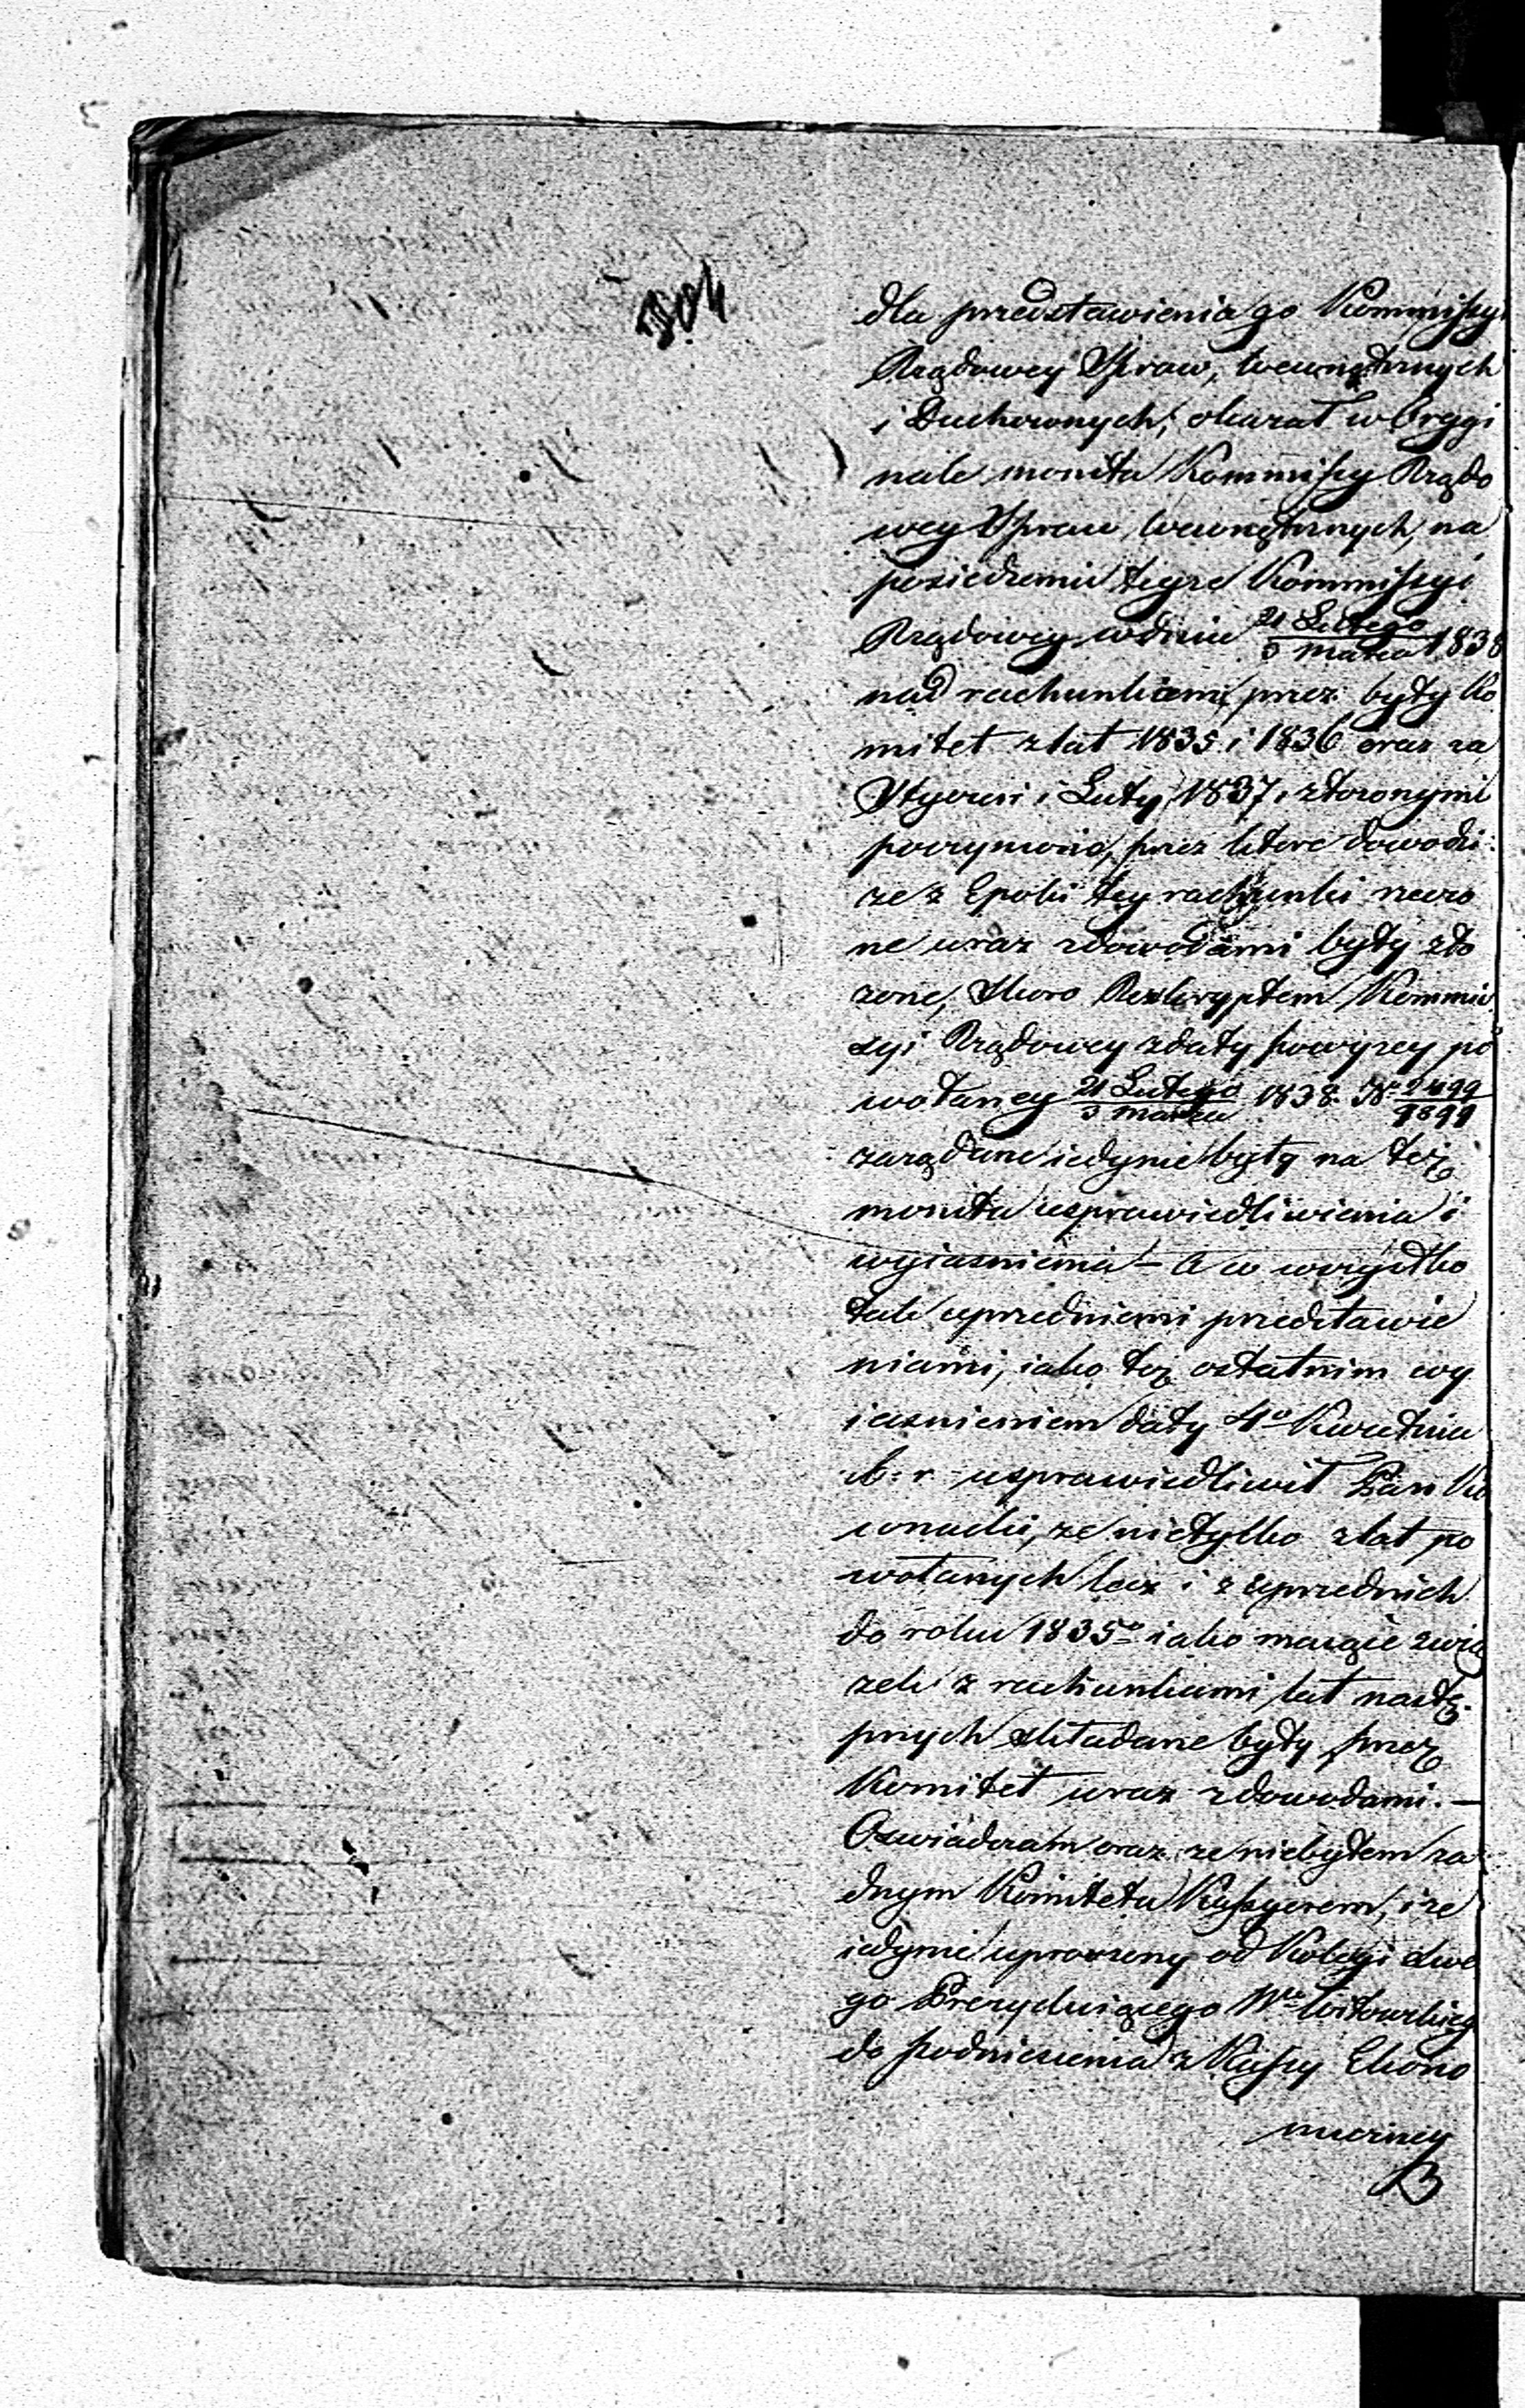 304
dla przedstawienia go Kommissyi
Rządowey Spraw, wewnętrznych
i Duchownych, okazał w Oryggi
nale monita Kommissyi Rządo
wey Spraw wewnętrznych, na
posiedzeniu teyze Kommissyi
Rządowey w dniu 21 Lutego / 5 Marca 1838
nad rachunkami przez były Ko
mitet z lat 1835 i 1836 oraz za
Styczeń i Luty 1837, złozonymi
poczynione, przez które dowodzi:
ze z Epoki tey rachunki rzeczo
ne wraz z dowodami były zło
zone, skoro Reskryptem Kommis
syi Rządowey z daty powyzey po
wołaney 21 Lutego / 5 Marca 1838. No 2499 / 9899
zarządane iedynie były na też
monita usprawiedliwienia i
wyiasnienia – A co wszystko
tak uprzedniemi przedstawie
niami, iako też ostatnim wy
iasnieniem daty 4o Kwietnia
b: r usprawiedliwił Pan
ze nietylko z lat po
wołanych lecz i z uprzednich
do roku 1835o iako maiące zwią
zek z rachunkami lat nastę-
pnych składane były przez
Komitet wraz z dowodami. –
Oswiadczam oraz ze niebyłem za
dnym Komitetu Kassyerem, i ze
iedynie uproszony od Kolegi swe
go Prezyduiącego Wgo
do podniesienia z Kassy Ekono
miczney